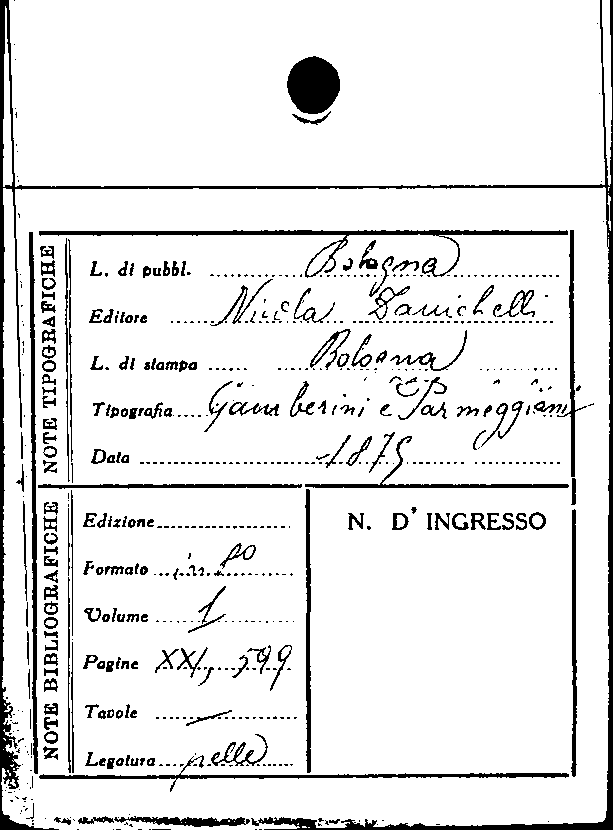 NOTE TIPOGRAFICHE
L. di pubbl. Bologna
Editore Nicola Zanichelli
L. di stampa Bologna
Tipografia Gamberini e Parmeggiani
Data 1875
NOTE BIBLIOGRAFICHE
Edizione
Formato in 8º
Volume 1
Pagine XXI, 599
Tavole —
Legatura pelle
N. D' INGRESSO